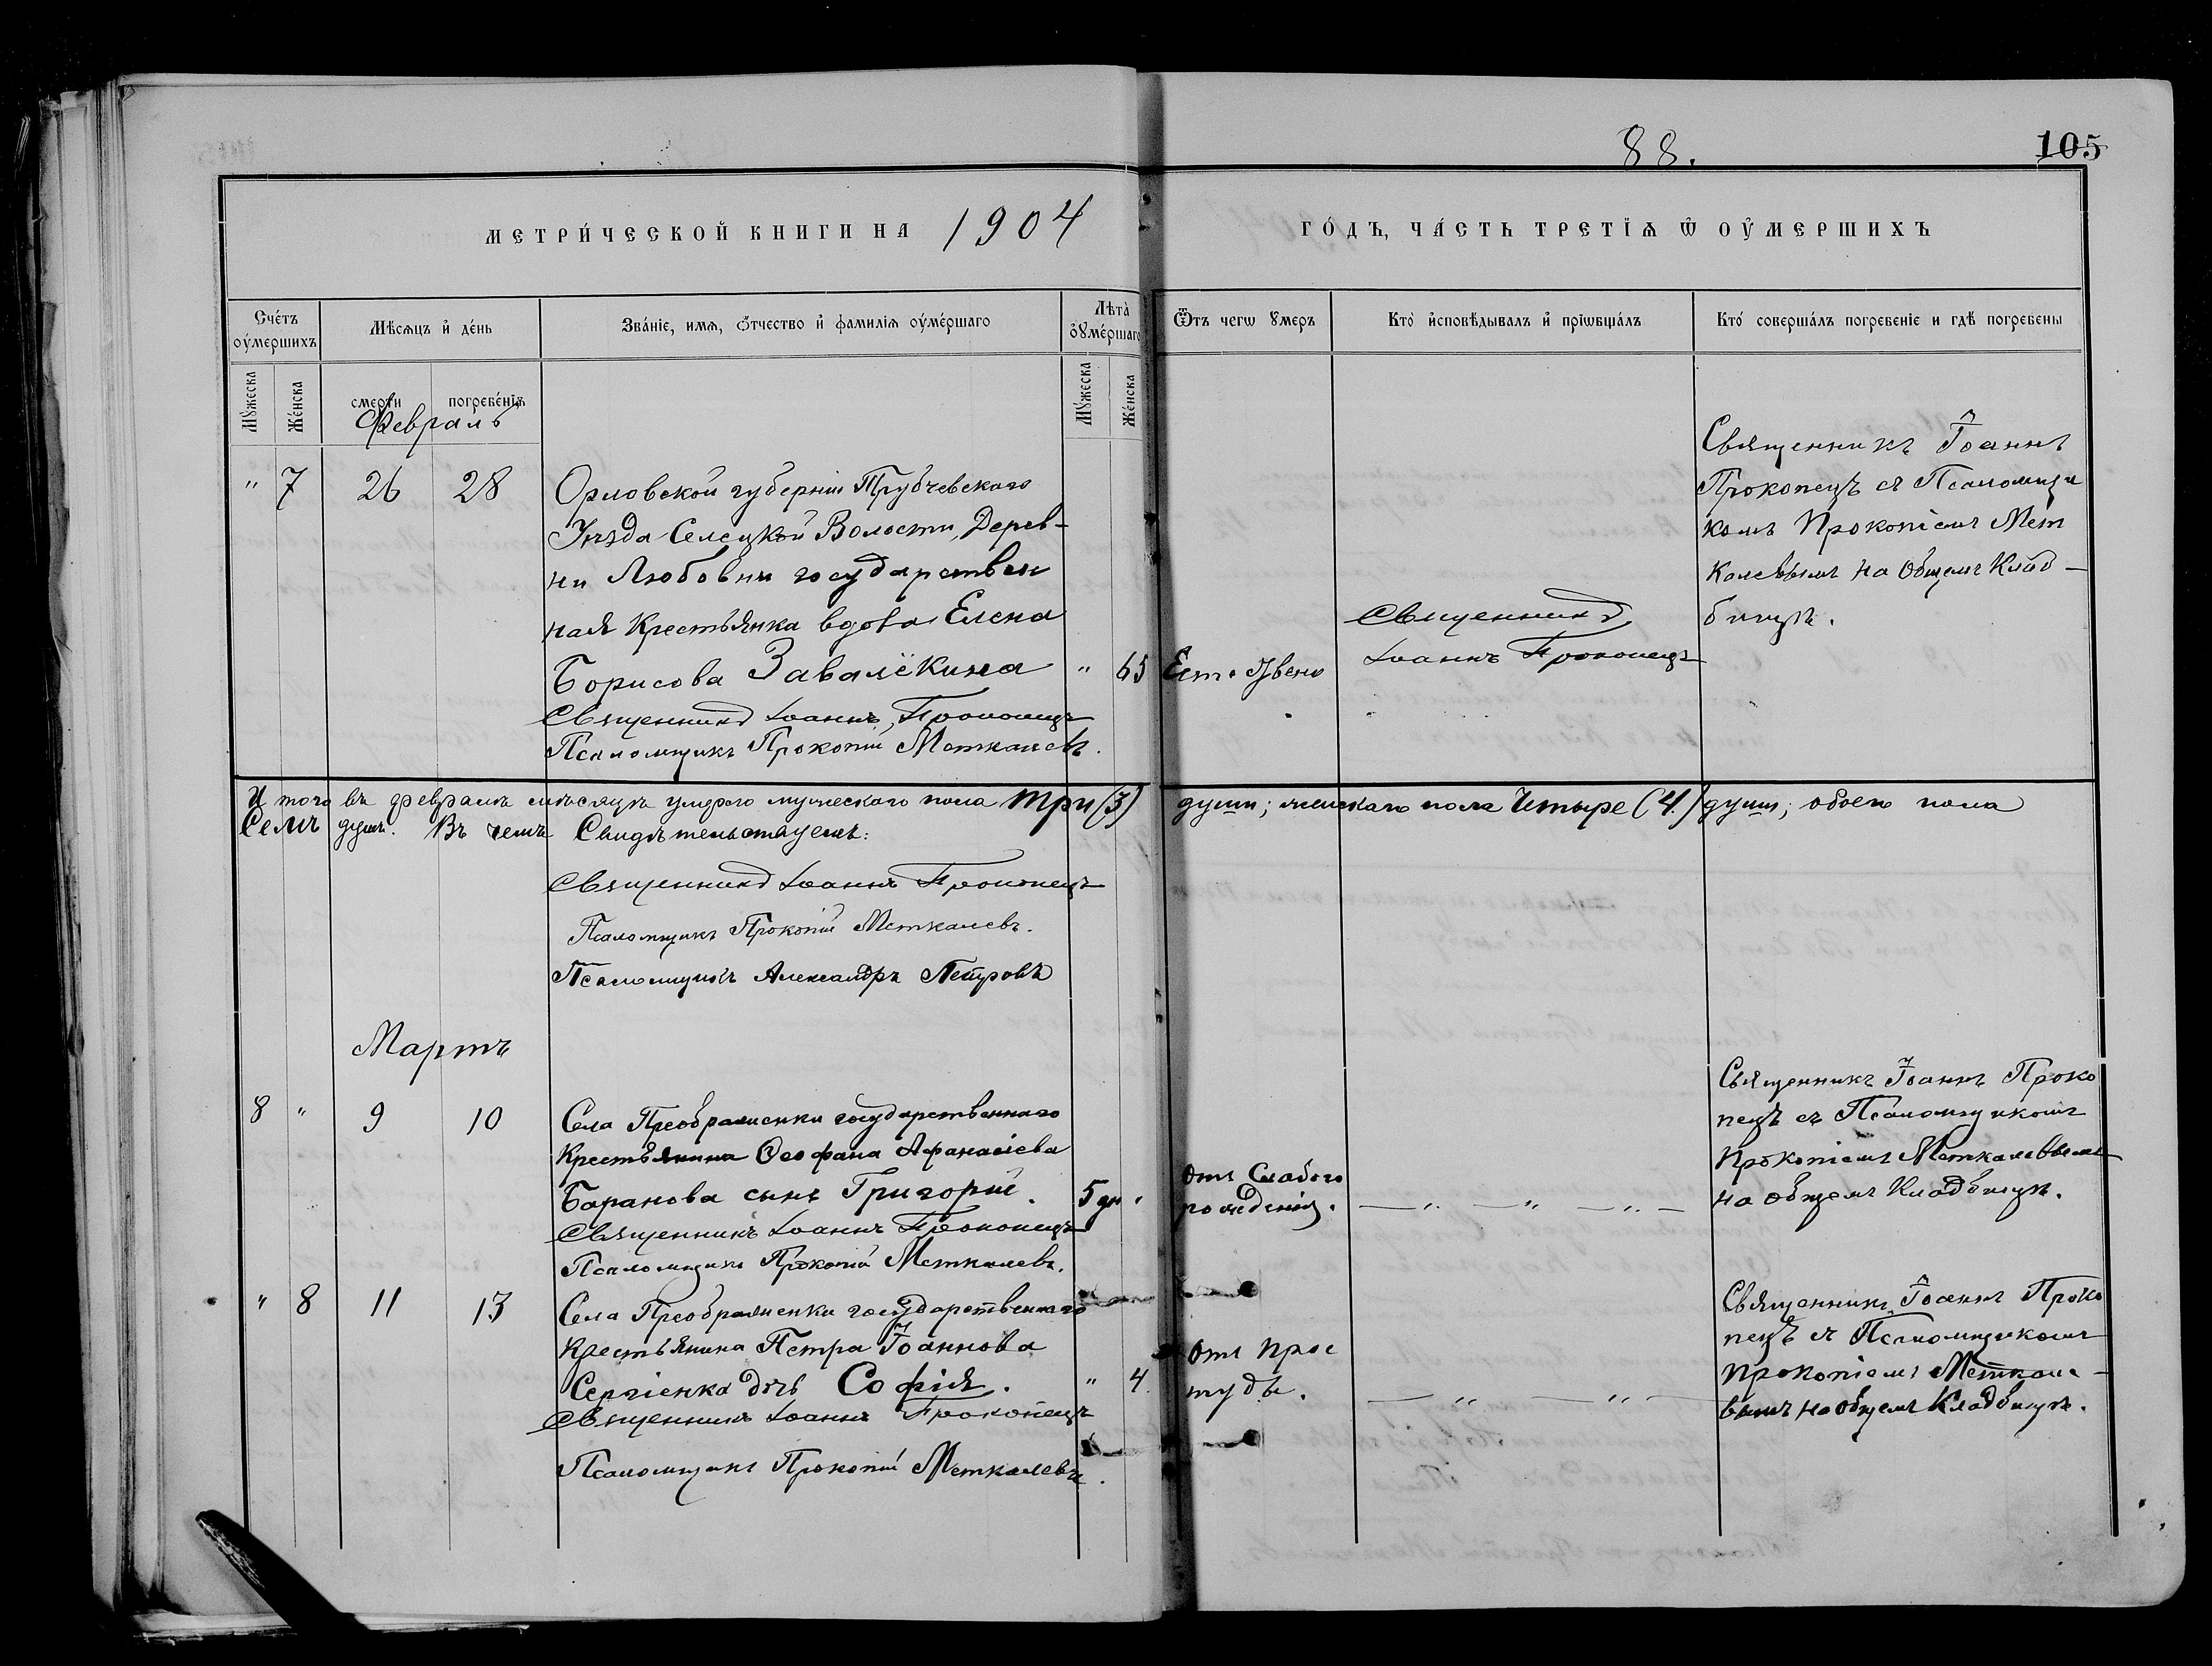 88.
105
МЕТРИ́ЧЕСКОЙ КНИГИ НА 1904
ГО́ДЪ, ЧА́СТЬ ТРЕТІѦ Ѿ ОУ҆МЕРШИХЪ
Сче́тъ оу҆ме́ршихъ
Мѣ́сѧцъ и҆ де́нь
Зва́нїе, имѧ, ѿтчество и҆ фамилїѧ оу҆ме́ршаго
Лѣта̀ оу҆ме́ршаго
Ѿтъ чегѡ ᲂумеръ
Кто̀ и҆сповѣ́дывалъ и҆ прїѡбща́лъ
Кто́ соверша́лъ погребенїе и гдѣ̀ погребены
Мꙋ́жеска
Же́нска
смерти
погребе́нїѧ
Мꙋ́жеска
Же́нска
Февраль
" 7 26 28
Орловской губерніи Трубчевскаго
Уѣзда Селецкой Волости, Дерев-
ни Любовни государствен
ная Крестьянка вдова Елена
Борисова Завалёкина
" 65
Священникъ Іоаннъ Прокопецъ
Псаломщикъ Прокопій Меткалевъ.
Ест
Священникъ
Іоаннъ Прокопецъ
Священникъ Іоаннъ
Прокопецъ съ Псаломщи
комъ Прокопіемъ Мет
калевымъ на Общемъ Клад-
бищѣ.
Итого въ февралѣ мѣсяцѣ умерло мужескаго пола три (3) души; женскаго пола Четыре (4) души; обоего пола
Семь душъ. Въ чемъ Свидѣтельствуемъ:
Священникъ Іоаннъ Прокопецъ
Псаломщикъ Прокопій Меткалевъ.
Псаломщикъ Александръ Петровъ
Мартъ
8 " 9 10
Села Преображенки государственнаго
Крестьянина Ѳеофана Афанасіева
Баранова сынъ Григорій.
5 дн "
Священникъ Іоаннъ Прокопецъ
Псаломщикъ Прокопій Меткалевъ.
Отъ Слабаго
рожденія.
— " — " — " —
Священникъ Іоаннъ Проко
пецъ съ Псаломщикомъ
Прокопіемъ Меткалевымъ
на общемъ Кладбищѣ.
" 8 11 13
Села Преображенки государственнаго
Крестьянина Петра Іоаннова
Сергіенка дочь Софія.
" 4.
Священникъ Іоаннъ Прокопецъ
Псаломщикъ Прокопій Меткалевъ.
Отъ прос
туды.
— " — " —
Священникъ Іоаннъ Проко
пецъ съ Псаломщикомъ
Прокопіемъ Меткале-
вымъ на общемъ Кладбищѣ.